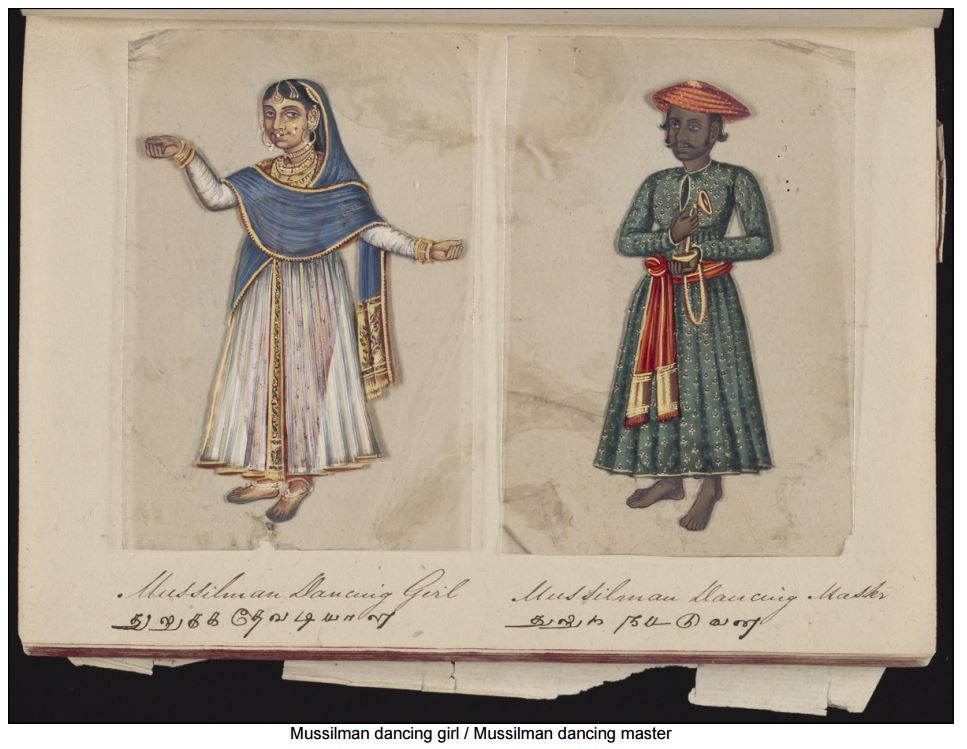 Mussilman Dancing Girl
துலுகக தேவடியாள
Mussilman Dancing Master
துலுக நடடுவன
Mussilman dancing girl / Mussilman dancing master